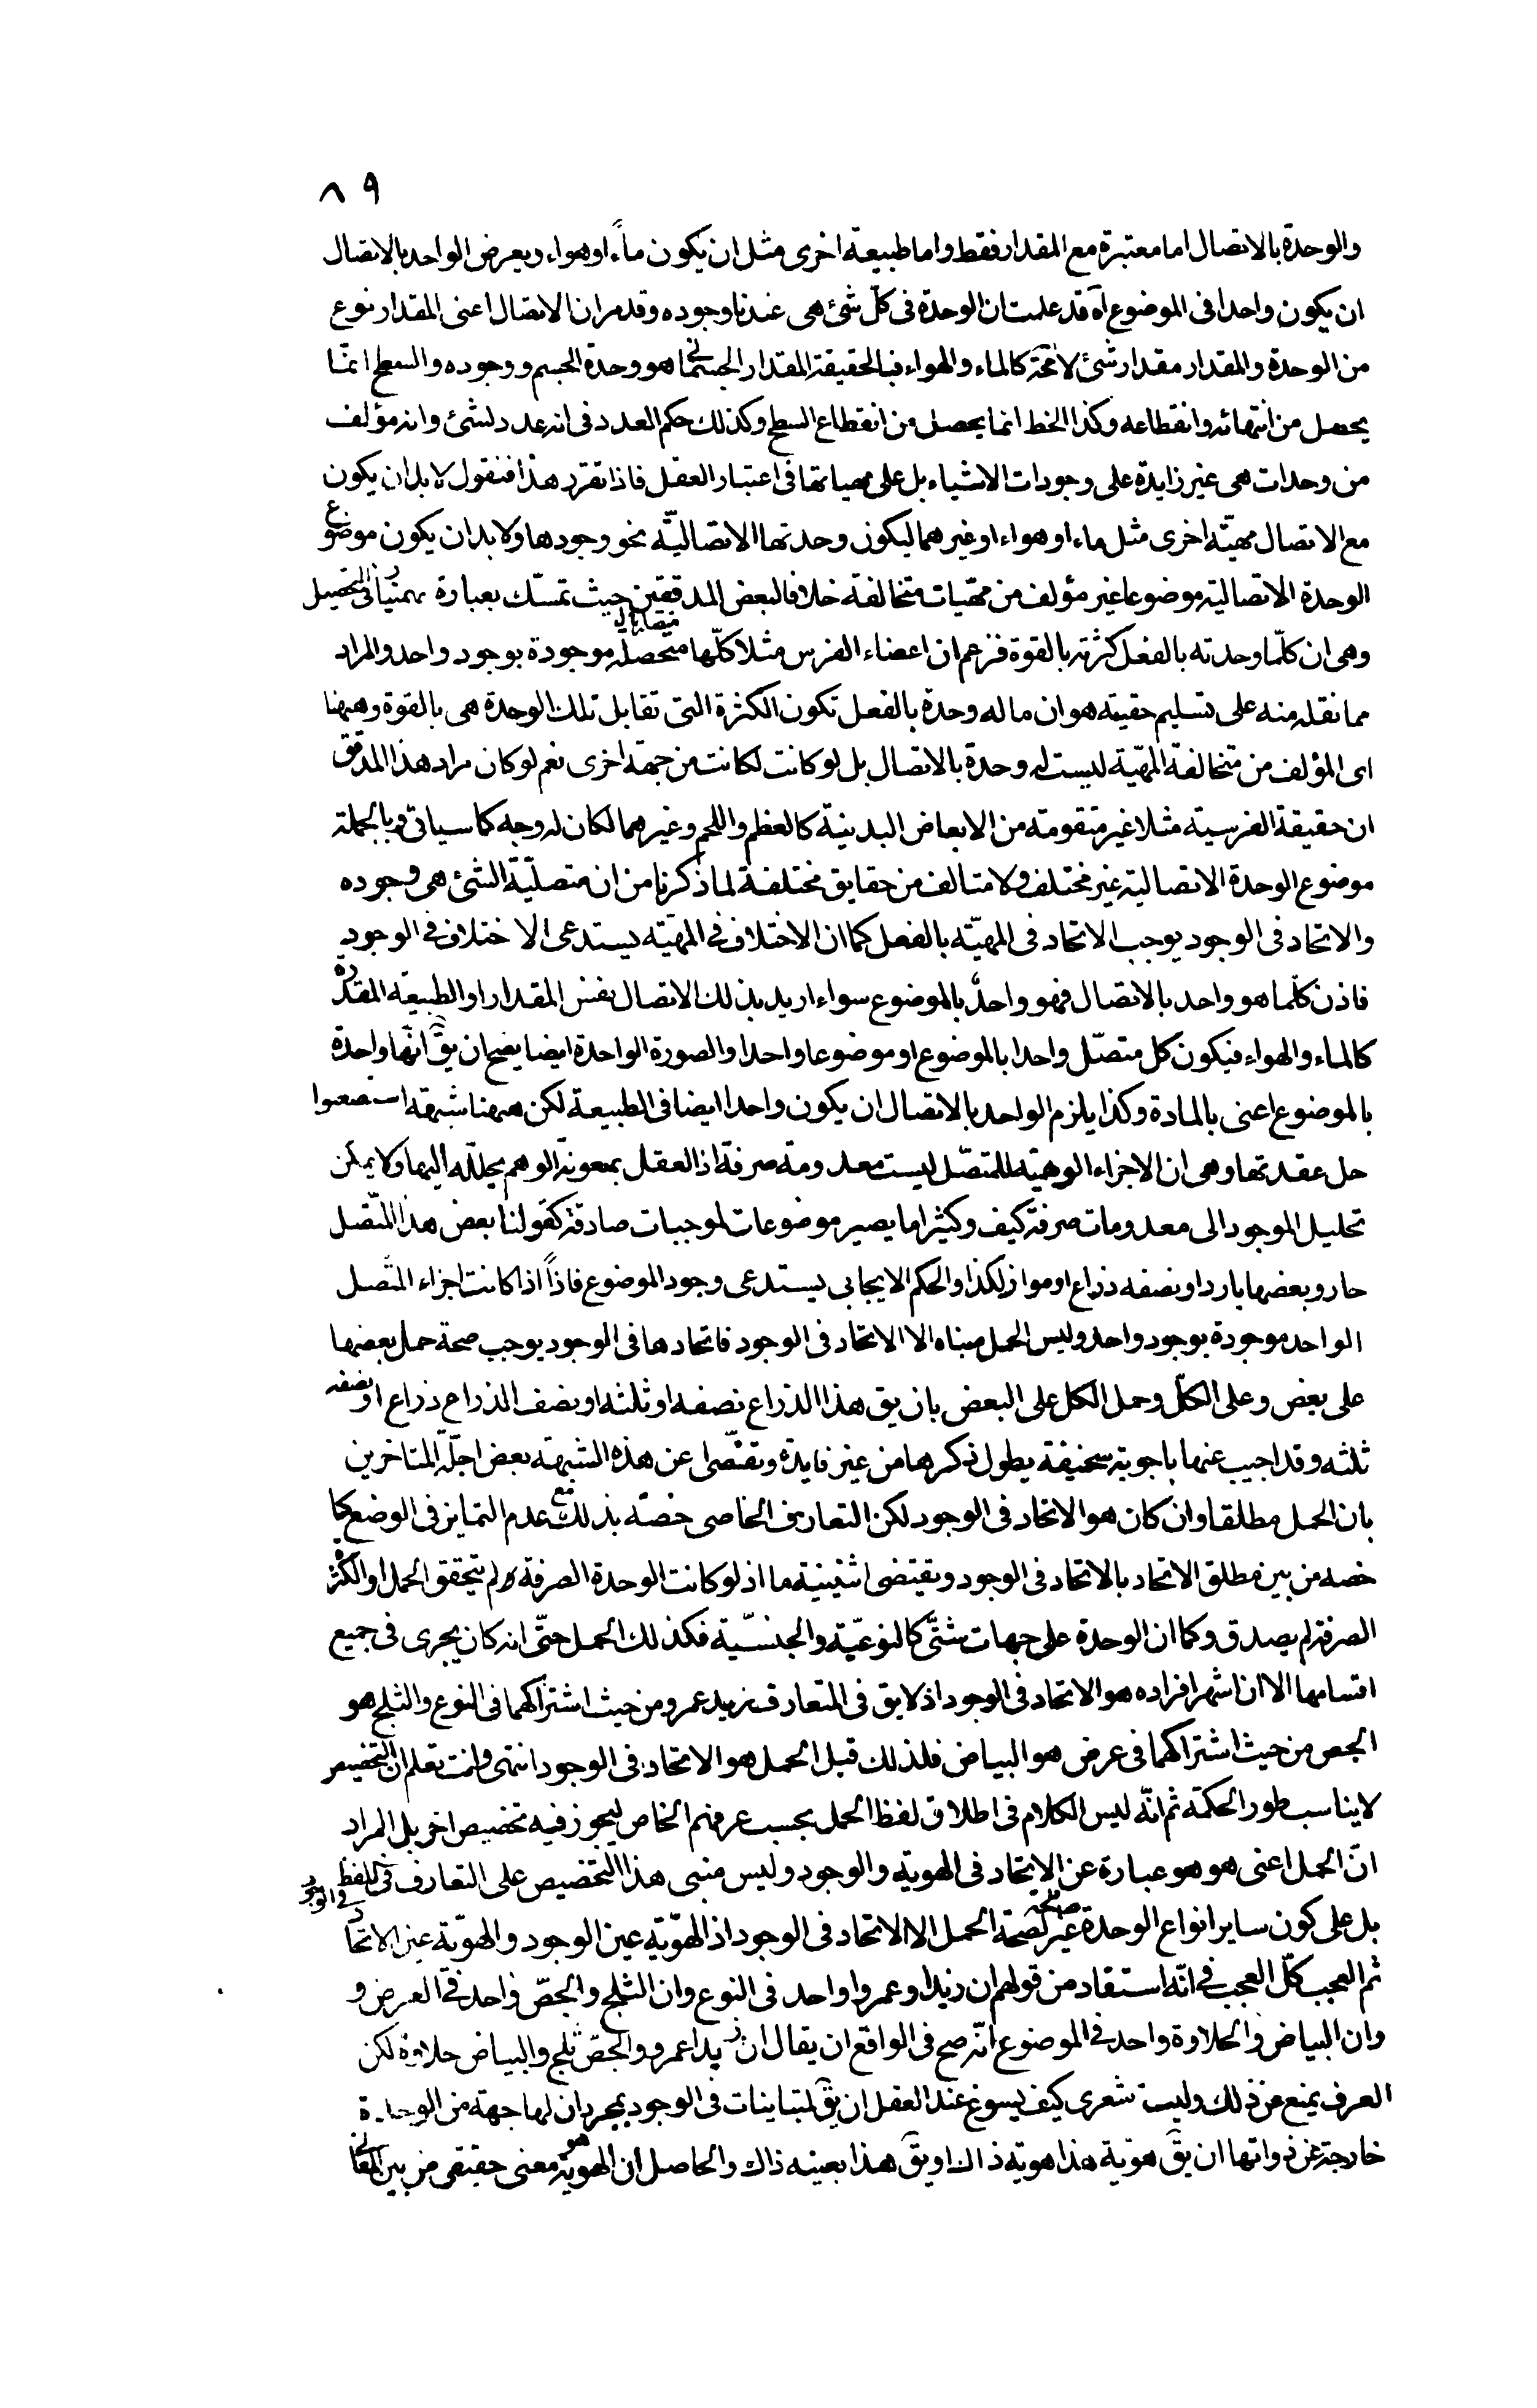 ٨٩
والوحدة بالاتصال اما معتبرة مع المقدار فقط واما طبيعة اخرى مثل ان يكون ماءً او هواء ويعرض الواحد بالاتصال
ان يكون واحدا فى الموضوع آه قد علمت ان الوحدة فى كلّ شئ هى عندنا وجوده وقد مر ان الاتصال اعنى المقدار نوع
من الوحدة والمقدار مقدار شئ لا محة كالماء والهواء فبالحقيقة المقدار الجسمانى هو وحدة الجسم ووجوده والسطح انمّا
يحصل من انتهائه وانقطاعه وكذا الخط انما يحصل من انقطاع السطح وكذلك حكم العدد فى انه عدد لشئ وانه مؤلف
من وحدات هى غير زايدة على وجودات الاشياء بل على مهياتها فى اعتبار العقل فاذا تقرر هذا فنقول لا بد ان يكون
مع الاتصال مهيّة اخرى مثل ماء او هواء او غيرهما ليكون وحدتها الاتصاليّة نحو وجودها ولا بد ان يكون موضوع
الوحدة الاتصالية موضوعا غير مؤلف من مهيّات متخالفة خلافا لبعض المدققين حيث تمسّك بعبارة بهمنيار فى التحصيل
وهى ان كلّما وحدته بالفعل كثرته بالقوة فزعم ان اعضاء الفرس مثلا كلّها متحصله موجودة بوجود واحد والمراد
مما نقله منه على تسليم حقيته هو ان ما له وحدة بالفعل تكون الكثرة التى تقابل تلك الوحدة هى بالقوة وههنا
اى المؤلف من متخالفة المهيّة ليست له وحدة بالاتصال بل لو كانت لكانت من جهة اخرى نعم لو كان مراد هذا المدقق
ان حقيقة الفرسية مثلا غير متقومة من الابعاض البدنية كالعظم واللحم وغيرهما لكان له وجه كما سياتى وبالجملة
موضوع الوحدة الاتصالية غير مختلف ولا متالف من حقايق مختلفة لما ذكرنا من ان متصليّة الشئ هى وجوده
والاتحاد فى الوجود يوجب الاتحاد فى المهيّة بالفعل كما ان الاختلاف فى المهيّة يستدعى الاختلاف فى الوجود
فاذن كلّما هو واحد بالاتصال فهو واحدٌ بالموضوع سواء اريد بذلك الاتصال نفس المقدار او الطبيعة المقدرة
كالماء والهواء فيكون كل متصّل واحدا بالموضوع او موضوعا واحدا والصورة الواحدة ايضا يصح ان يقّ انّها واحدة
بالموضوع اعنى بالمادة وكذا يلزم الواحد بالاتصال ان يكون واحدا ايضا فى الطبيعة لكن ههنا شبهة استصعبوا
حل عقدتها وهى ان الاجزاء الوهميّة للمتصّل ليست معدومة صرفة اذ العقل بمعونة الوهم يحلّله اليها ولا يمكن
تحليل الموجود الى معدومات صرفة كيف وكثيرا ما يصير موضوعات لموجبات صادقة كقولنا بعض هذا المتّصل
حار وبعضها بارد او نصفه ذراع او مواز لكذا والحكم الايجابى يستدعى وجود الموضوع فاذاً اذا كانت اجزاء المتّصل
الواحد موجودة بوجود واحد وليس الحمل مبناه الا الاتحاد فى الوجود فاتحادها فى الوجود يوجب صحة حمل بعضها
على بعض وعلى الكلّ وحمل الكل على البعض بان يق هذا الذراع نصفه او ثلثه او نصف الذراع ذراع او نصفه
ثلثه وقد اجيب عنها باجوبة سخيفة يطول ذكرها من غير فايدة وتفصّى عن هذه الشبهة بعض اجلّة المتاخرين
بان الحمل مطلقا وان كان هو الاتحاد فى الوجود لكن التعارف الخاصى خصّه بذلك مع عدم التمايز فى الوضع كما
خصه من بين مطلق الاتحاد بالاتحاد فى الوجود وتقتضى اثنينية ما اذ لو كانت الوحدة الصرفة لم يتحقق الحمل او الكثرة
الصرفة لم يصدق وكما ان الوحدة على جهات شتّى كالنوعيّة والجنسيّة فكذلك الحمل حتّى انه كان يجرى فى جميع
اقسامها الا ان اشهر افراده هو الاتحاد فى الوجود اذ لا يق فى المتعارف زيد عمرو من حيث اشتراكهما فى النوع والثلج هو
الجص من حيث اشتراكهما فى عرض هو البياض فلذلك قيل الحمل هو الاتحاد فى الوجود انتهى وانت تعلم ان التخصيص
لا يناسب طور الحكمة ثم انّه ليس الكلام فى اطلاق لفظ الحمل بحسب عرفهم الخاص ليجوز فيه تخصيص اخر بل المراد
انّ الحمل اعنى هو هو عبارة عن الاتحاد فى الهوية والوجود وليس مبنى هذا التخصيص على التعارف فى اللفظ
بل على كون ساير انواع الوحدة غير صالحة لصحة الحمل الا الاتحاد فى الوجود اذ الهوّية عين الوجود والهويّة عين الاتحاد فى الوجود
ثم العجب كلّ العجب فى انّه استفاد من قولهم ان زيدا وعمروا واحد فى النوع وان الثلج والجصّ واحد فى العرض و
وان البياض والحلاوة واحد فى الموضوع انّه صح فى الواقع ان يقال ان زيدا عمرو والجصّ ثلج والبياض حلاوة لكن
العرف يمنع من ذلك وليت شعرى كيف يسوغ عند العقل ان يقّ لمتباينات فى الوجود بمجرد ان لها جهة من الوحدة
خارجة عن ذواتها ان يقّ هويّة هذا هوية ذاك او يقّ هذا بعينه ذاك والحاصل ان الهوهوية معنى حقيقى من بين المعانى